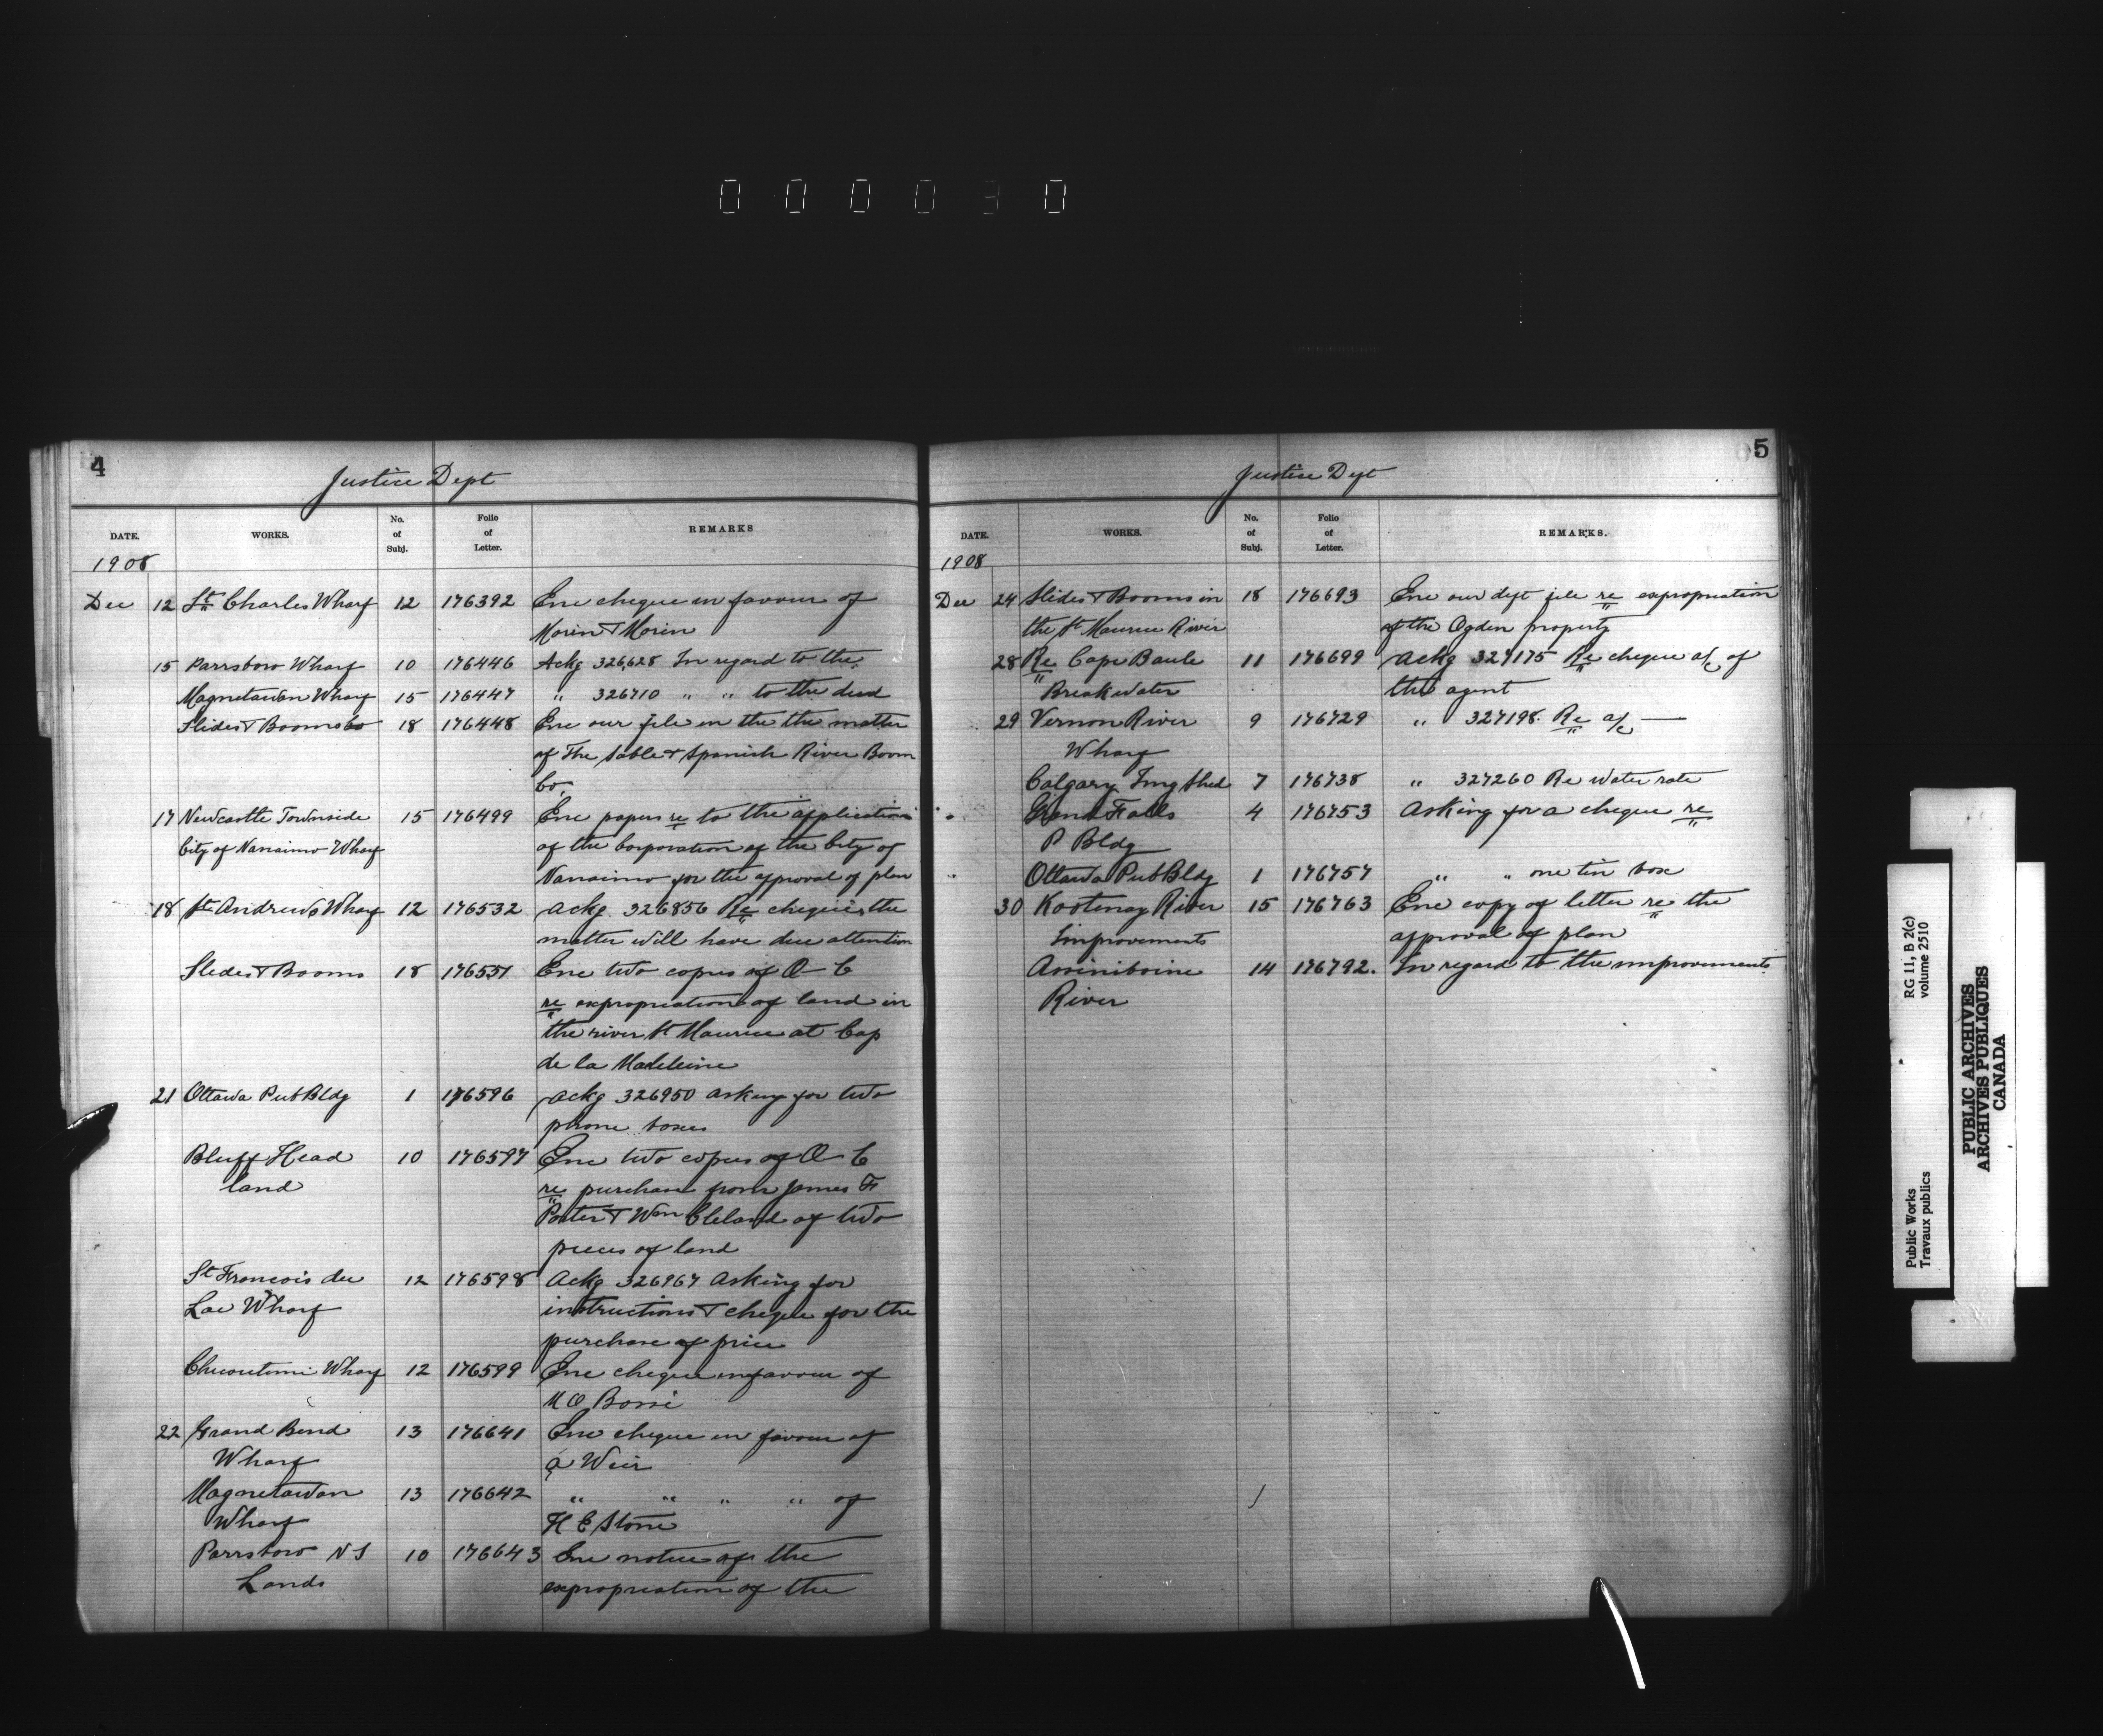 000030
4
Justice Dept
DATE. WORKS. No. of Subj. Folio of Letter. REMARKS
1908
Dec 12 St Charles Wharf 12 176392 Enc cheque in favour of
Morin & Morin
15 Parrsboro Wharf 10 176446 Ackg 326,628 In regard to the
Magnetawan Wharf 15 176447 " 326710 " " to the deed
Slides & Booms Co 18 176448 Enc our file in the the matter
of The Sable & Spanish River Boom
Co.
17 Newcastle Townside 15 176499 Enc papers re to the application
City of Nanaimo Wharf of the Corporation of the City of
Nanaimo for the approval of plan
18 St Andrews Wharf 12 176532 Ackg 326856 Re cheque, the
matter will have due attention
Slides & Booms 18 176551 Enc two copies of O C
re expropriation of land in
the river St Maurice at Cap
de la Madeleine
21 Ottawa Pub Bldg 1 176596 Ackg 326950 asking for two
phone boxes
Bluff Head 10 176597 Enc two copies of O C
land re purchase from James F
Porter & Wm Cleland of two
pieces of land
St Francois du 12 176598 Ackg 326967 Asking for
Lac Wharf instructions & cheque for the
purchase of price
Chicoutimi Wharf 12 176599 Enc cheque in favour of
M O Bossé
22 Grand Bend 13 176641 Enc cheque in favour of
Wharf A Weir
Magnetawan 13 176642 " " " " of
Wharf H E Stone
Parrsboro N S 10 176643 Enc notice of the
Lands expropriation of the
5
Justice Dept
DATE. WORKS. No. of Subj. Folio of Letter. REMARKS.
1908
Dec 24 Slides & Booms in 18 176693 Enc our dept file re expropriation
the St Maurice River of the Ogden property
28 Re Cape Baule 11 176699 Ackg 327175 Re cheque a/c of
Breakwater the agent
29 Vernon River 9 176729 " 327198. Re a/c —
Wharf
Calgary Img Shed 7 176738 " 327260 Re water rate
Grand Falls 4 176753 Asking for a cheque re
P Bldg
Ottawa Pub Bldg 1 176757 " " one tin box
30 Kootenay River 15 176763 Enc copy of letter re the
Improvements approval of plan
Assiniboine 14 176792. In regard to the improvements
River
RG 11, B 2(c)
volume 2510
Public Works
Travaux publics
PUBLIC ARCHIVES
ARCHIVES PUBLIQUES
CANADA